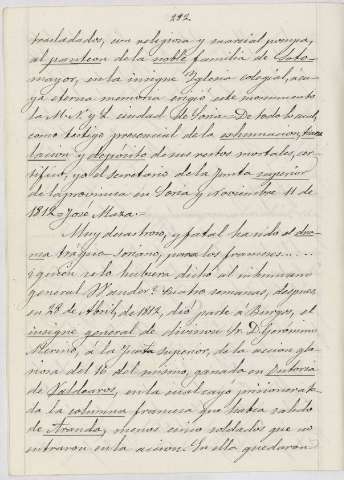 292.
trasladados, con religiosa y marcial pompa,
al panteon de la noble familia de Soto-
mayor, en la insigne Iglesia colegial, á cu-
ya eterna memoria erigió este monumento
la M. N. y L. ciudad de Soria = De todo lo cual,
como testigo presencial de la exhumacion, tras-
lacion y depósito de sus restos mortales, cer-
tifico, yo el secretario de la Junta superior
de la provincia en Soria y Noviembre 11 de
1812 = José Maza =
Muy desastroso, y fatal siendo el dra-
ma trágico-soriano, para los franceses....
¡quién se lo hubiera dicho al inhumano
general Vandor? Cuatro semanas, despues,
en 28 de Abril, de 1812, dió parte á Burgos, el
insigne general de division Sr. D. Geronimo
Merino, á la Junta superior, de la accion glo-
riosa del 16 del mismo, ganada en Ontoria
de Valdearos, en la cual cayó prisionera to-
da la columna francesa que habia salido
de Aranda, menos cinco soldados que no
entraron en la accion. En ella quedaron